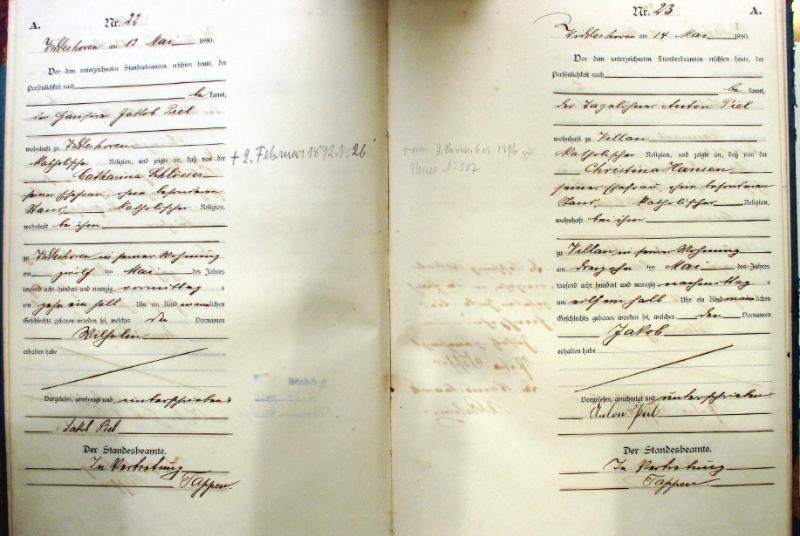 A.
Nr. 22
am 12 Mai 1890.
Vor dem unterzeichneten Standesbeamten erschien heute, der
Persönlichkeit nach
be kannt,
der Jakob Piel
wohnhaft zu
katholischer Religion, und zeigte an, daß von der
Catharina Schlösser
seiner Ehefrau, ohne besonderen
Stand, katholischer Religion,
wohnhaft bei ihm
zu in seiner Wohnung
am zwölften Mai des Jahres
tausend acht hundert und neunzig vormittag s
um zehn ein halb Uhr ein Kind männlichen
Geschlechts geboren worden sei, welches den Vornamen
Wilhelm
erhalten habe
Vorgelesen, genehmigt und unterschrieben
Jakob Piel
Der Standesbeamte.
In Vertretung
Tappen.
+ 2. Februar 1892 N. 26
Nr. 23
A.
am 14 Mai 1890.
Vor dem unterzeichneten Standesbeamten erschien heute, der
Persönlichkeit nach
be kannt,
der Tagelöhner Anton Piel
wohnhaft zu
katholischer Religion, und zeigte an, daß von der
Christina Hansen
seiner Ehefrau, ohne besonderen
Stand, katholischer Religion,
wohnhaft bei ihm
zu in seiner Wohnung
am dreizehn ten Mai des Jahres
tausend acht hundert und neunzig nachmittag s
um ein halb Uhr ein Kind männlichen
Geschlechts geboren worden sei, welches den Vornamen
Jakob
erhalten habe
Vorgelesen, genehmigt und unterschrieben
Anton Piel
Der Standesbeamte.
In Vertretung
Tappen.